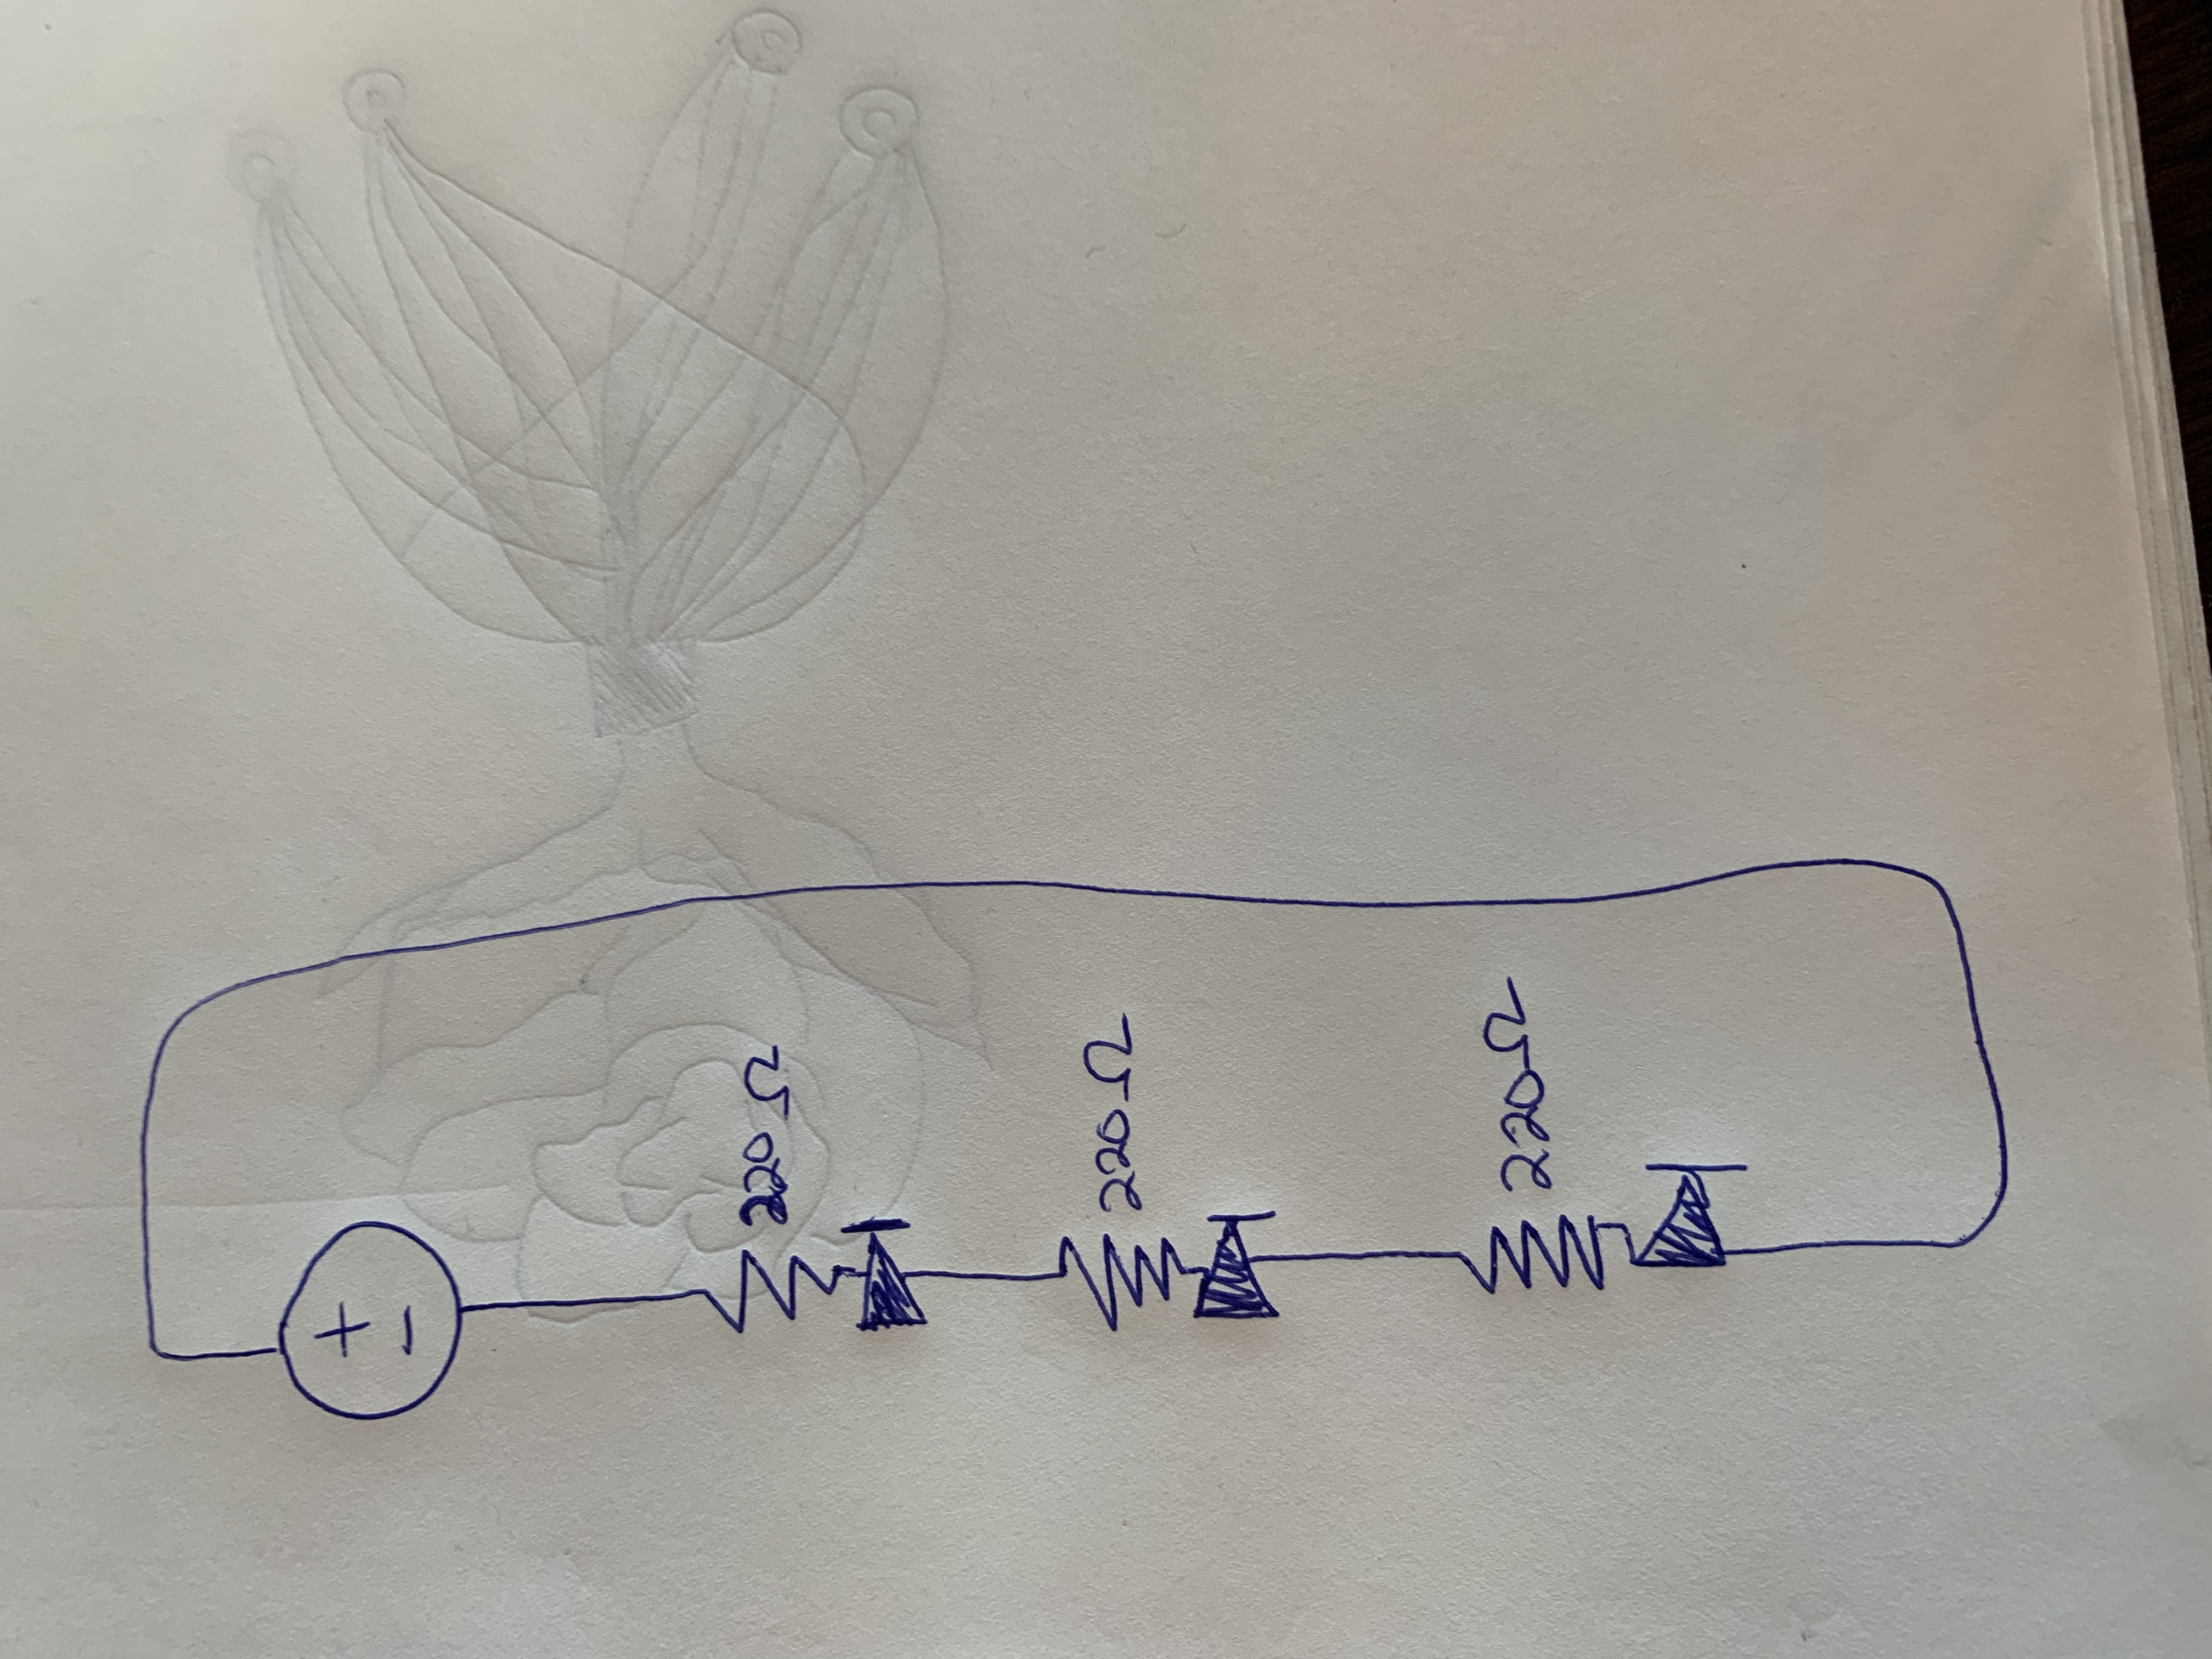 220Ω
220Ω
220Ω
+ -